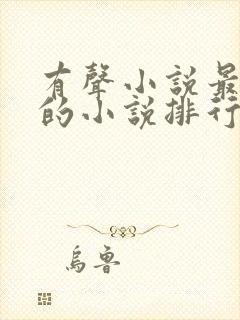 有聲小說最
的小說排行
烏魯